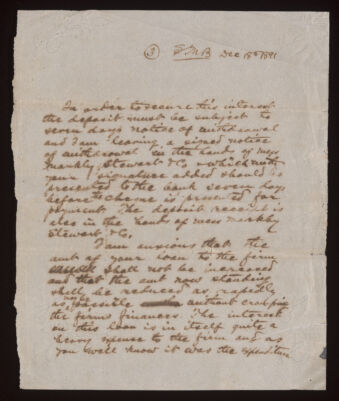 (3) F.M.B Dec 18th 1891
In order to secure this interest
the deposit must be subject to
seven days notice of withdrawal
and I am leaving a signed notice
of withdrawal in the hands of Mess
Markby, Stewart & Co which with
your signature added should be
presented to the bank seven days
before the cheque is presented for
payment. The deposit receipt is
also in the hands of Mess Markby
Stewart & Co.
I am anxious that the
amt of your loan to the firm
shall not be increased
and that the amt now standing
shall be reduced as rapidly
as possible without crippling
the firms finances. The interest
on this loan is in itself quite a
heavy expense to the firm and as
you well know it was the expenditure